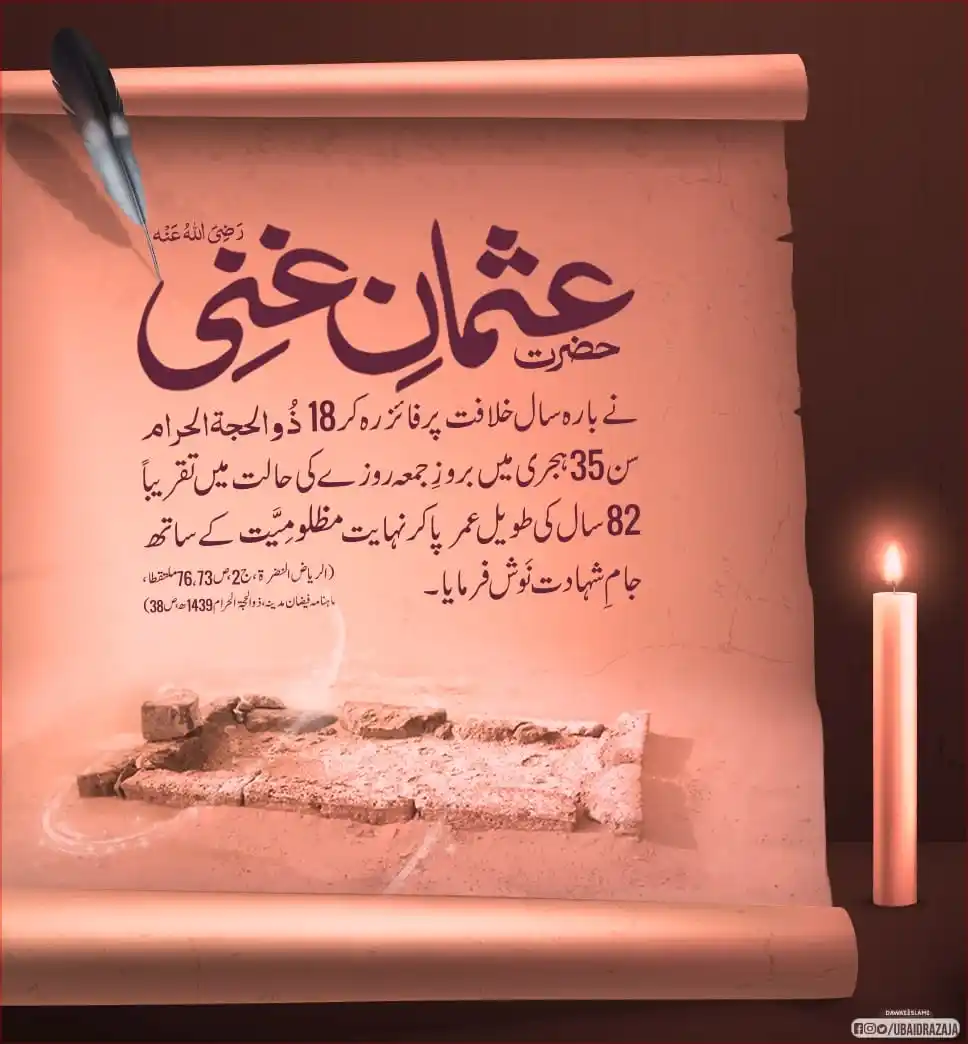 حضرت عثمانِ غنی رَضِیَ اللہُ عَنْہ
نے بارہ سال خلافت پر فائز رہ کر 18 ذُوالحجۃ الحرام
سن 35 ہجری میں بروزِ جمعہ روزے کی حالت میں تقریباً
82 سال کی طویل عمر پاکر نہایت مظلومِیَّت کے ساتھ
جامِ شہادت نَوش فرمایا۔
(الریاض النضرۃ، ج2، ص76،73 ملتقطا،
ماہنامہ فیضان مدینہ، ذوالحجۃ الحرام 1439ھ، ص38)
DAWATEISLAMI
/UBAIDRAZAJA